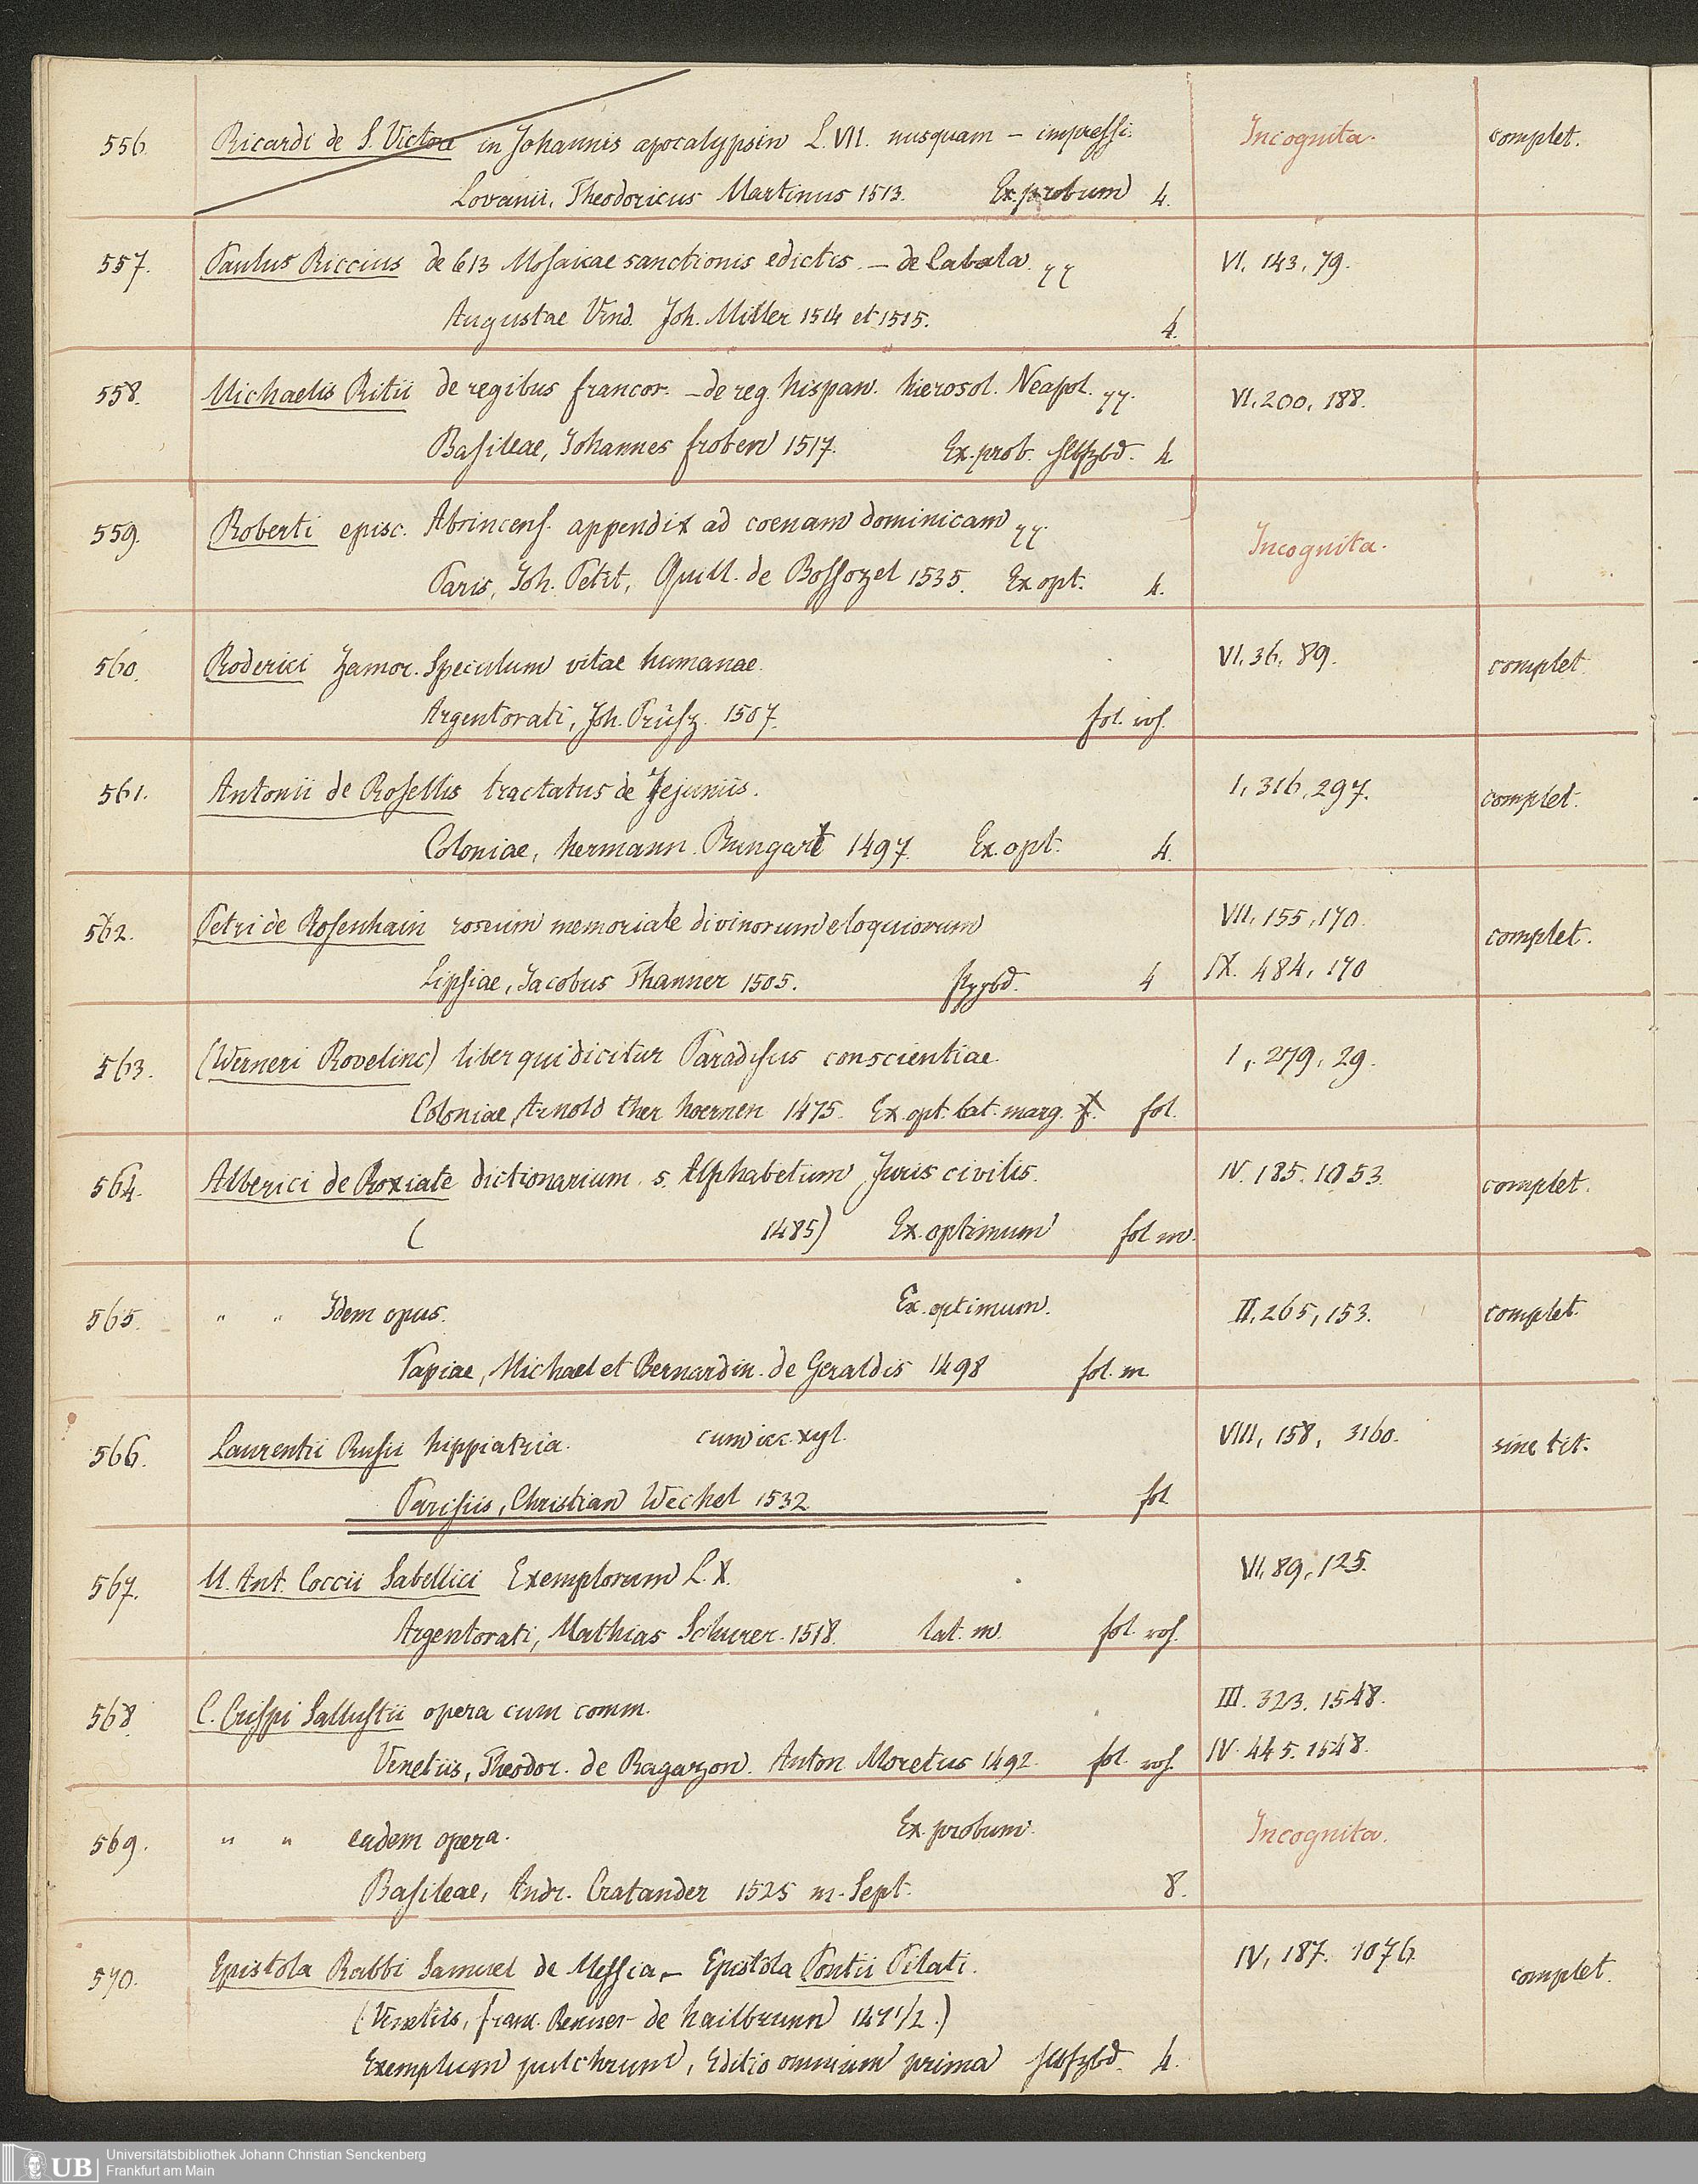 556. Ricardi de S. Victore in Johannis apocalypsin L. VII. nusquam – impressi. Incognita. complet.
Lovanii, Theodoricus Martinus 1513. Ex. probum 4.
557. Paulus Riccius de 613 Mosaicae sanctionis edictis. – de Cabala. VI. 143, 79.
Augustae Vind. Joh. Miller 1514 et 1515. 4.
558. Michaelis Ritii de regibus francor. – de reg. hispan. hierosol. Neapol. VI. 200, 188.
Basileae, Johannes Froben 1517. Ex. prob. Hlbfrzbd. 4
559. Roberti episc. Abrincens. appendix ad coenam dominicam Incognita.
Paris, Joh. Petit, Guill. de Bossozel 1535. Ex opt. 4.
560. Roderici Zamor. Speculum vitae humanae. VI. 36, 89. complet.
Argentorati, Joh. Prüsz. 1507. fol.
561. Antonii de Rosellis tractatus de Jejuniis. I, 316, 297. complet.
Coloniae, hermann. Bungart 1497 Ex. opt. 4.
562. Petri de Rosenhain roseum memoriale divinorum eloquiorum VII. 155, 170. complet.
Lipsiae, Jacobus Thanner 1505. 4 IX. 484, 170
563. (Werneri Rovelinc) liber qui dicitur Paradisus conscientiae. I, 279, 29.
Coloniae, Arnold ther hoernen 1475. Ex. opt. lat. marg. fol.
564. Alberici de Roxiate dictionarium s. Alphabetum Juris civilis. IV. 185. 1053. complet.
( 1485) Ex. optimum fol m.
565. " " Idem opus. Ex. optimum. II, 265, 153. complet.
Papiae, Michael et Bernardin. de Geraldis 1498 fol. m.
566. Laurentii Rusii hippiatria. cum icc. xyl. VIII, 158, 3160. sine tit.
Parisiis, Christian Wechel 1532 fol.
567. M. Ant. Coccii Sabellici Exemplorum L. X. VI, 89, 125.
Argentorati, Mathias Schurer 1518. lat. m. fol.
568 C. Crispi Sallustii opera cum comm. III. 323. 1548.
Venetiis, Theodor. de Ragazon. Anton Moretus 1492. fol. IV. 445. 1548.
569. " " eadem opera. Ex. probum. Incognita.
Basileae, Andr. Cratander 1525 m. Sept. 8.
570. Epistola Rabbi Samuel de Messia – Epistola Pontii Pilati. IV, 187. 1076. complet.
(Venetiis, franc. Renner de hailbrunn 1471/2.)
Exemplum pulchrum, Editio omnium prima Hlbfrzbd. 4.
Universitätsbibliothek Johann Christian Senckenberg
UB Frankfurt am Main